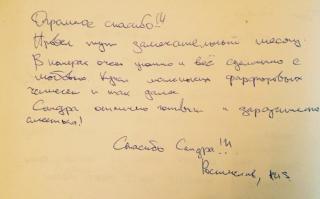 Огромное спасибо!!!
Провел тут замечательный месяц.
В номерах очень уютно и всё сделанно с
любовью. Куча маленьких фарфоровых
чашечек и так далее
Сандра отлично готовит и заразительно
смеётся!
Спасибо Сандра!!!
Ростислав,